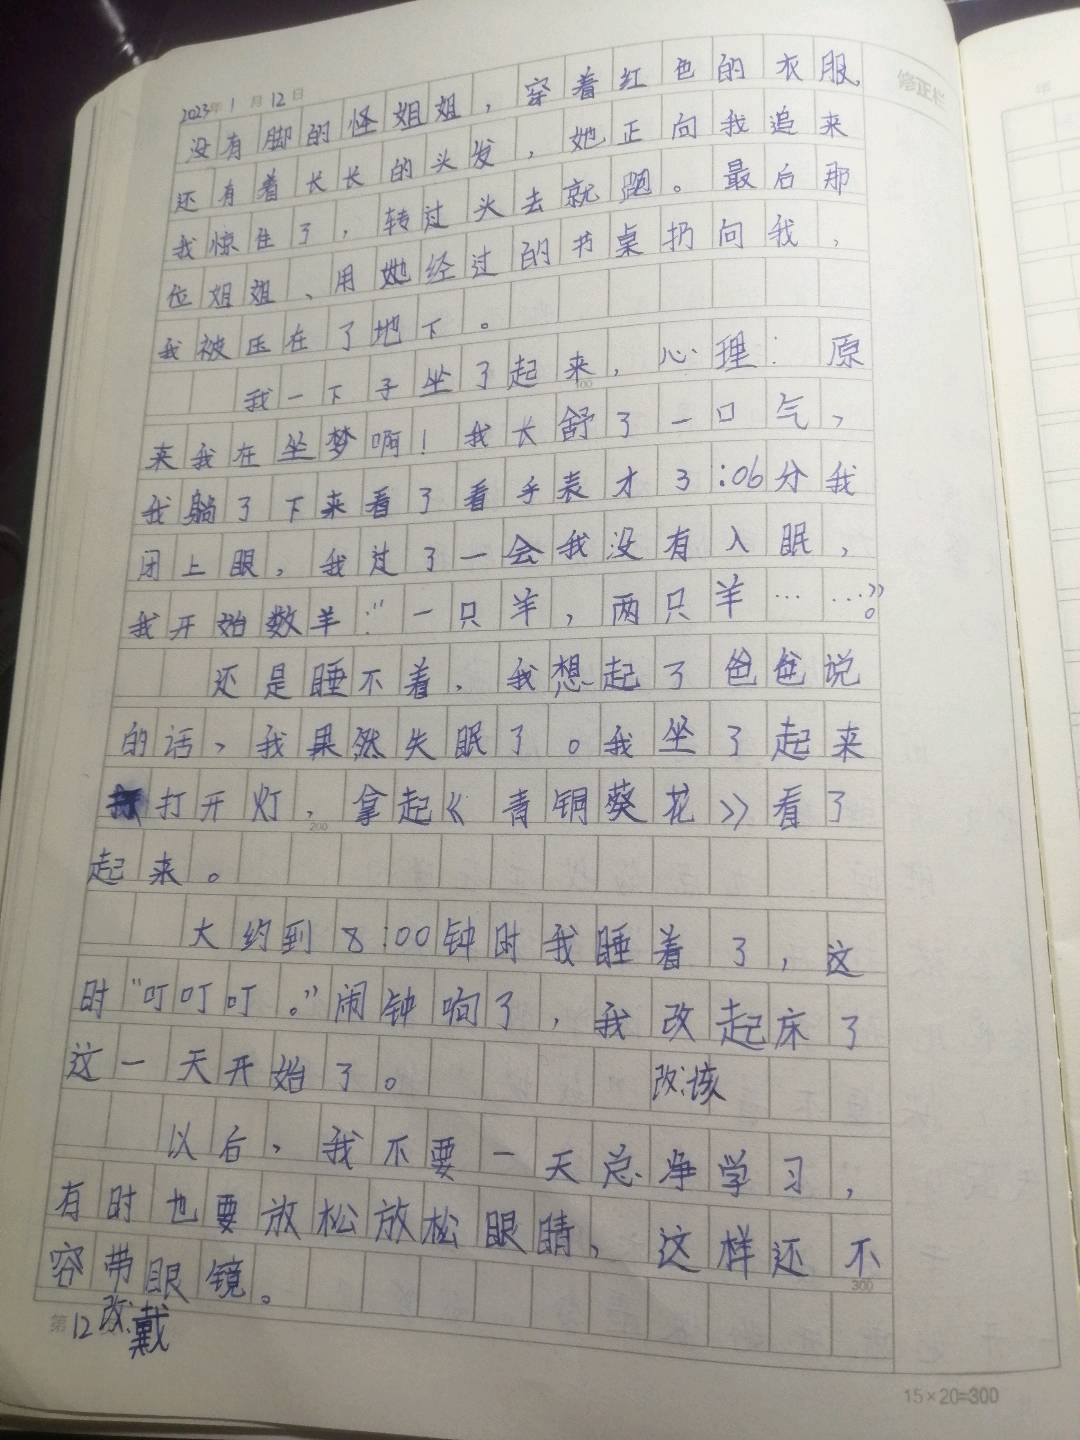 修正栏
年
2023年1月12日
没有脚的怪姐姐，穿着红色的衣服
还有着长长的头发，她正向我追来
我惊住了，转过头去就跑。最后那
位姐姐、用她经过的书桌扔向我，
我被压在了地下。
我一下子坐了起来，心理：原
100
来我在坐梦啊！我长舒了一口气，
我躺了下来看了看手表才3:06分我
闭上眼，我过了一会我没有入眠，
我开始数羊：“一只羊，两只羊……”。
还是睡不着，我想起了爸爸说
的话，我果然失眠了。我坐了起来
打开灯，拿起《青铜葵花》看了
200
起来。
大约到8:00钟时我睡着了，这
时“叮叮叮。”闹钟响了，我改起床了
这一天开始了。
改:该
以后，我不要一天总净学习，
有时也要放松放松眼睛，这样还不
300
容带眼镜。
第12
改:戴
15×20=300